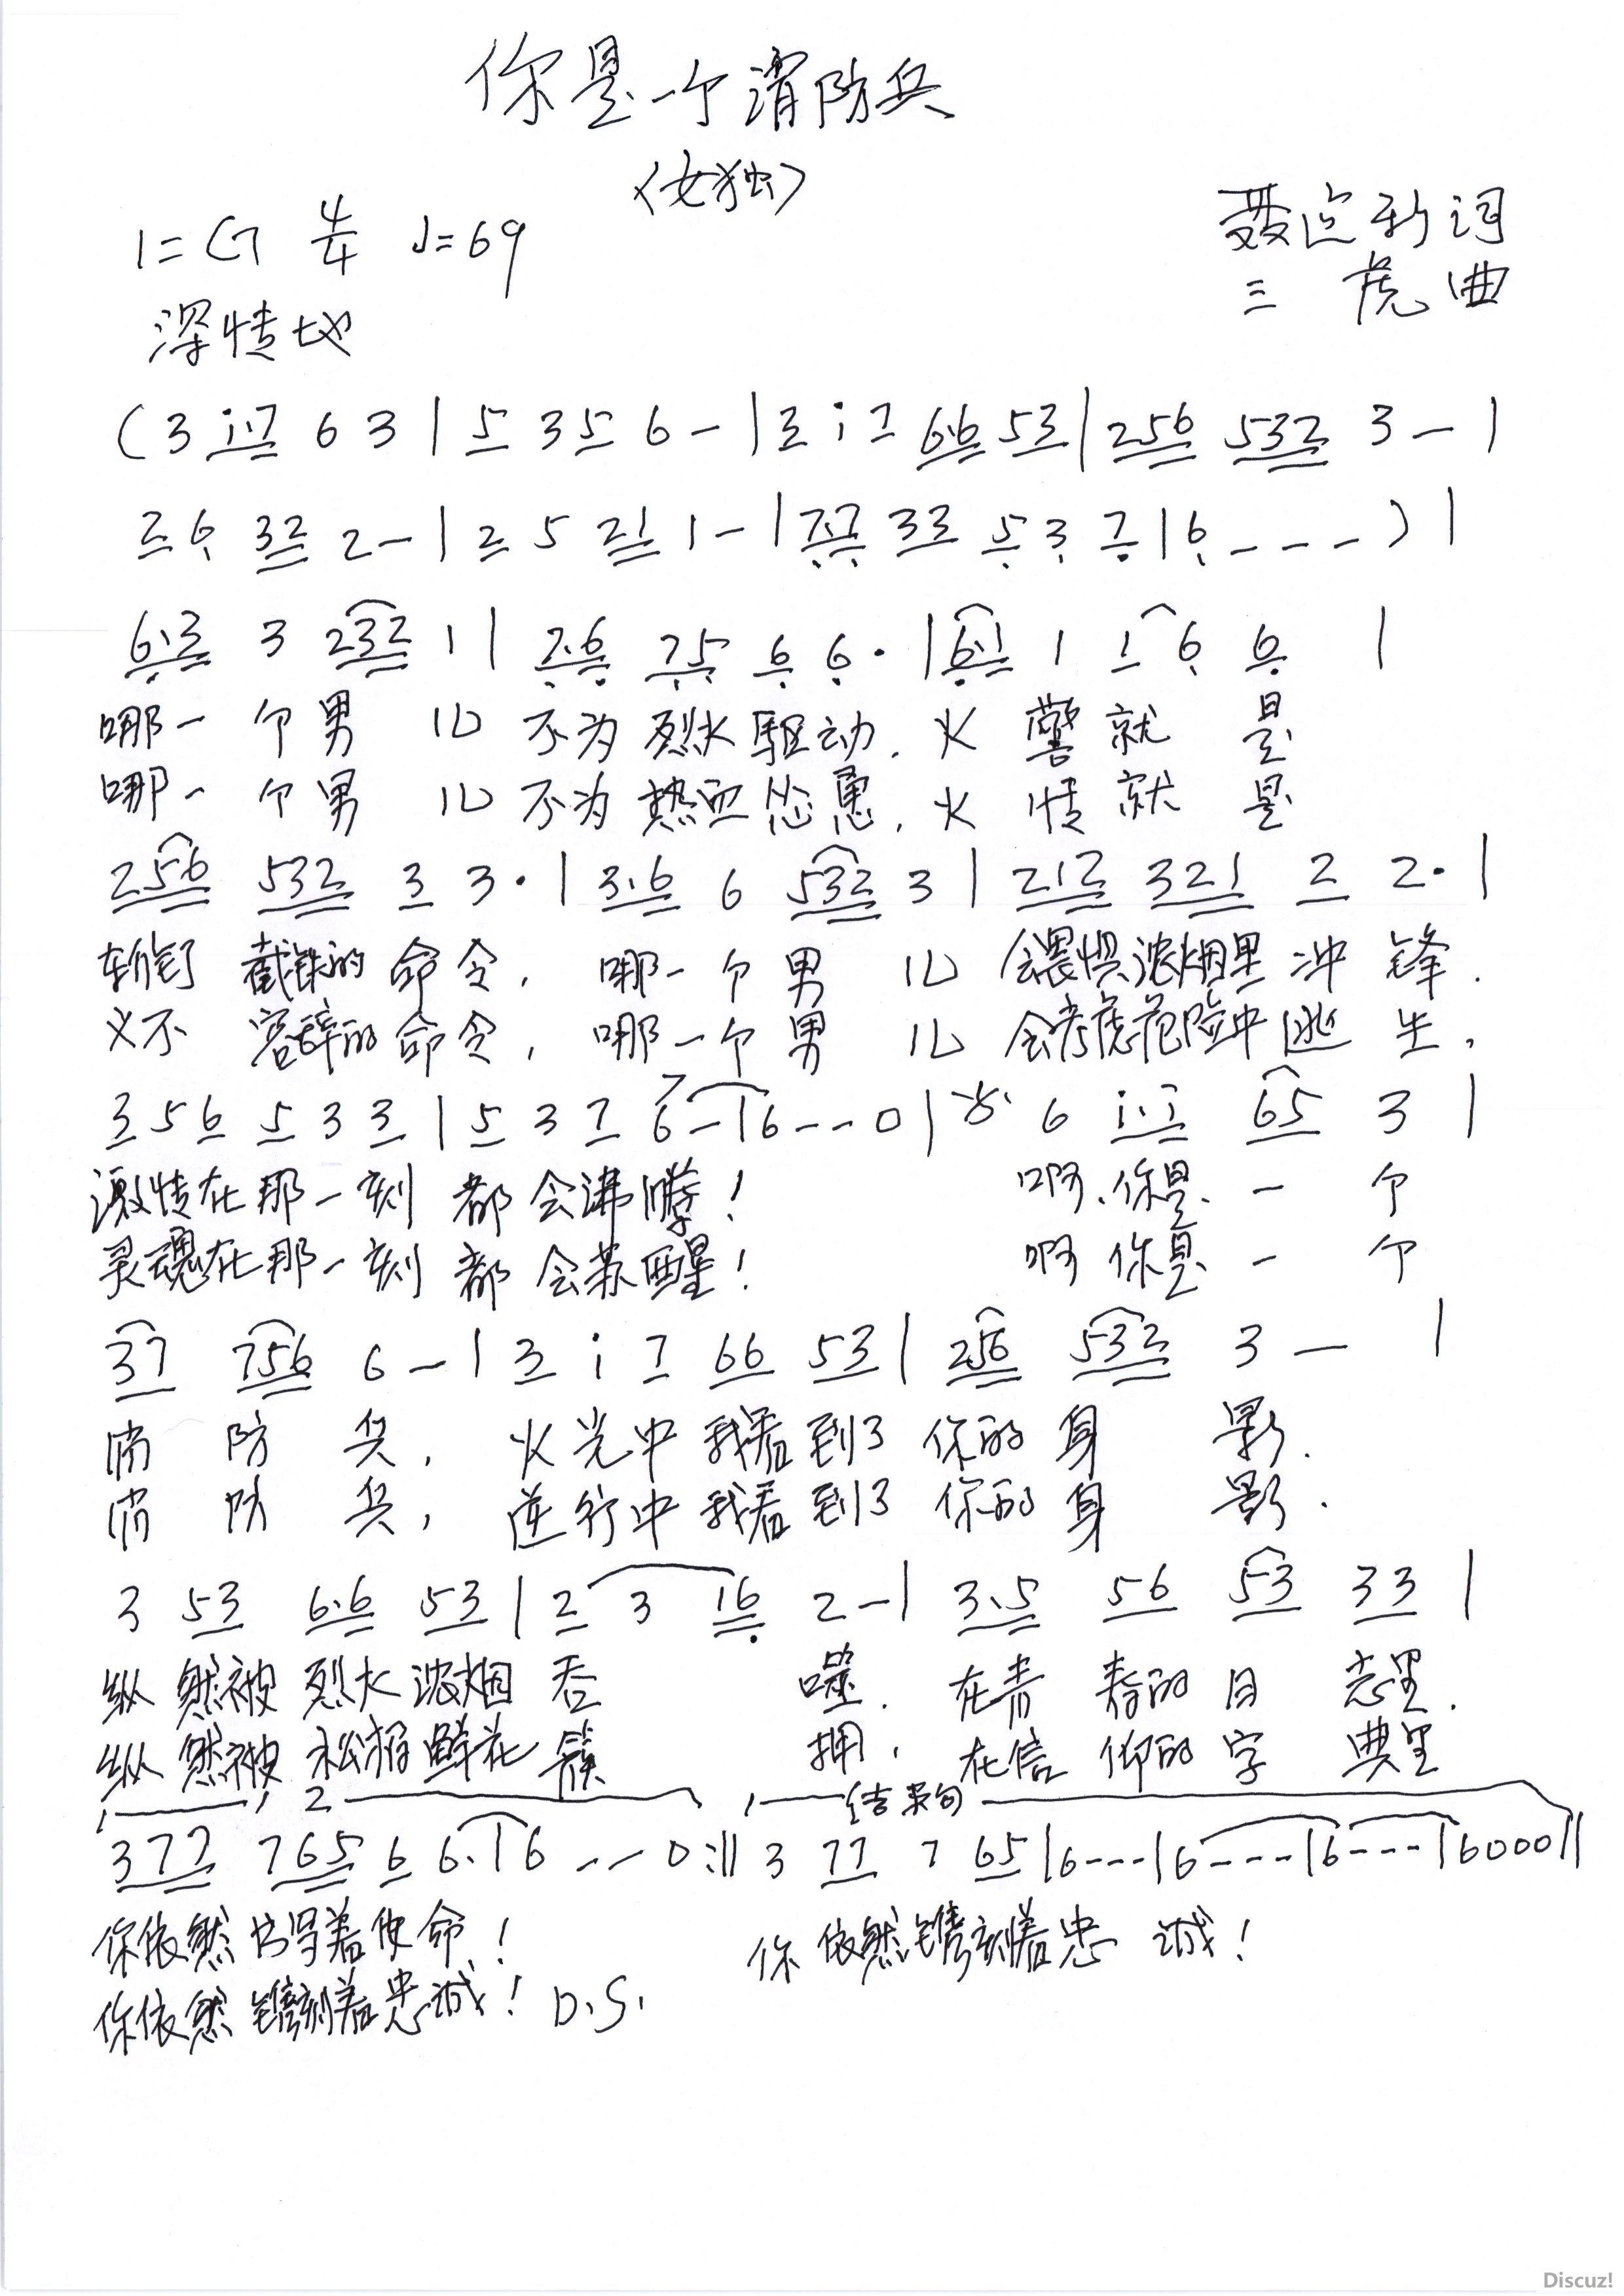 你是一个消防兵
〈女独〉
1=G 4/4 ♩=69
聂迩新词
深情地
三虎曲
(3 i·7 6 3 | 5 35 6 - | 3 i 7 6·6 53 | 256 532 3 - |
2 6 32 2 - | 2 5 21 1 - | 7·7 33 5 3 7 | 6 - - - ) |
6·3 3 232 1 | 7·6 75 6 6· | 6·1 1 1 6 6 |
哪一个男儿不为烈火驱动,火警就是
哪一个男儿不为热血怂恿,火情就是
256 532 3 3· | 3·6 6 532 3 | 2·12 321 2 2· |
斩钉截铁的命令,哪一个男儿会畏惧浓烟里冲锋.
义不容辞的命令,哪一个男儿会考虑危险中逃生,
3 5 6 5 3 3 | 5 3 7 6 - | 6 - - 0 | 𝄋 6 i·i 65 3 |
激情在那一刻都会沸腾! 啊,你是一个
灵魂在那一刻都会苏醒! 啊你是一个
37 756 6 - | 3 i 7 66 53 | 256 532 3 - |
消防兵,火光中我看到了你的身影.
消防兵,逆行中我看到了你的身影.
3 53 6·6 53 | 2 3 16 2 - | 3·5 56 53 33 |
纵然被烈火浓烟吞噬.在青春的日志里.
纵然被松柏鲜花簇拥,在信仰的字典里
1 2 结束句
377 765 6 6· | 6 - - 0 :|| 3 77 7 65 | 6 - - - | 6 - - - | 6 - - - | 6000 ||
你依然书写着使命! 你依然镌刻着忠诚!
你依然镌刻着忠诚! D.S.
Discuz!